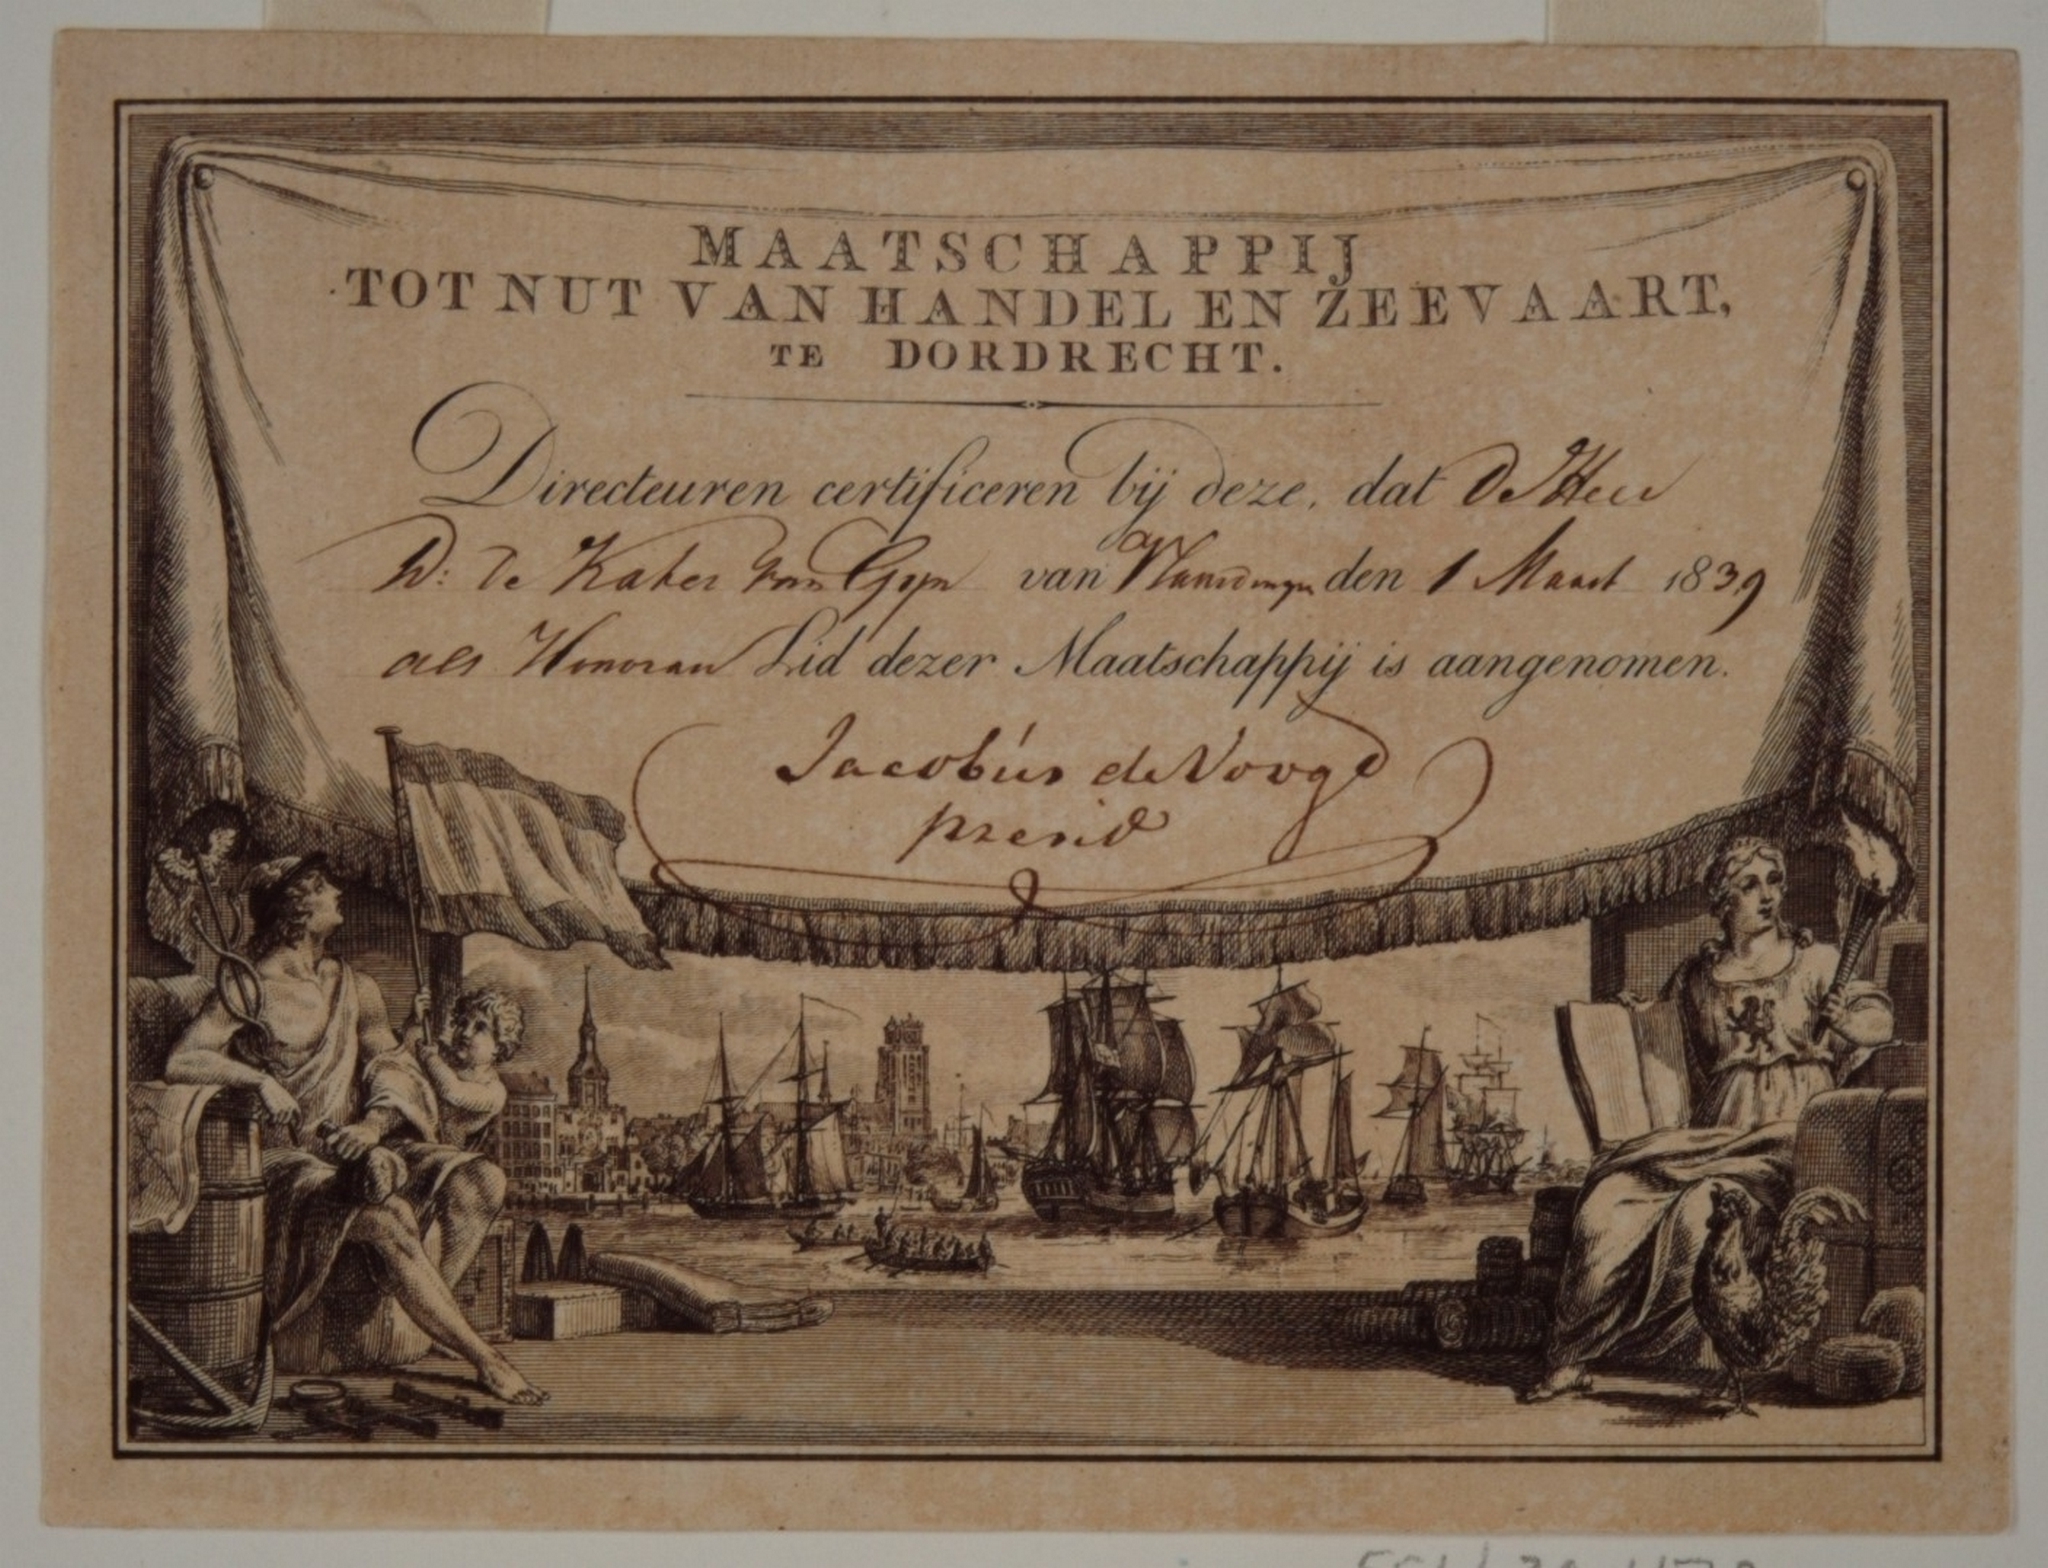 MAATSCHAPPIJ
TOT NUT VAN HANDEL EN ZEEVAART,
TE DORDRECHT.
Directeuren certificeren bij deze, dat De Heer
D: de Kater van Gijn van Vlaardingen den 1 Maart 1839
als Honorair Lid dezer Maatschappij is aangenomen.
Jacobús de Voogd
presid